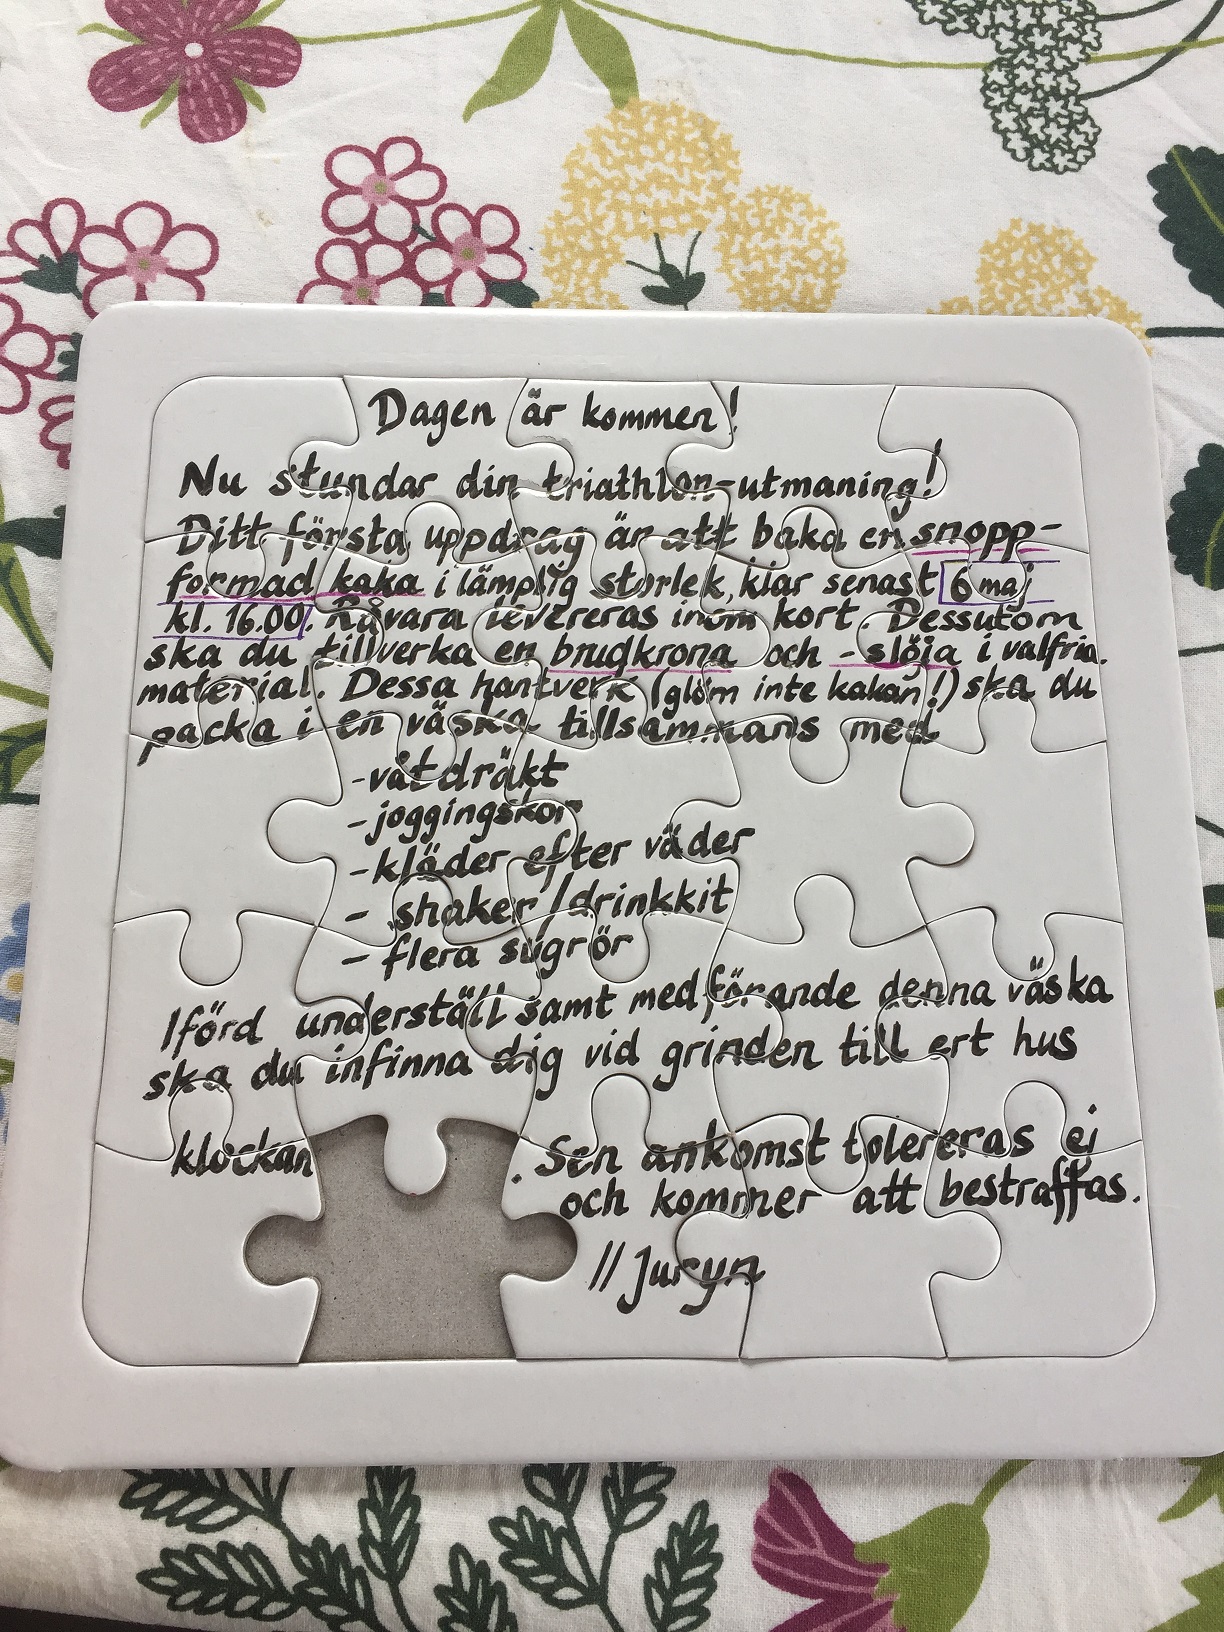 Dagen är kommen!
Nu stundar din triathlon-utmaning!
Ditt första uppdrag är att baka en snopp-
formad kaka i lämplig storlek, klar senast 6 maj
kl. 16.00. Råvara levereras inom kort. Dessutom
ska du tillverka en brudkrona och -slöja i valfria
material. Dessa hantverk (glöm inte kakan!) ska du
packa i en väska tillsammans med
-våtdräkt
-joggingskor
-kläder efter väder
- shaker/drinkkit
- flera sugrör
Iförd underställ samt medförande denna väska
ska du infinna dig vid grinden till ert hus
klockan . Sen ankomst tolereras ej
och kommer att bestraffas.
//Juryn